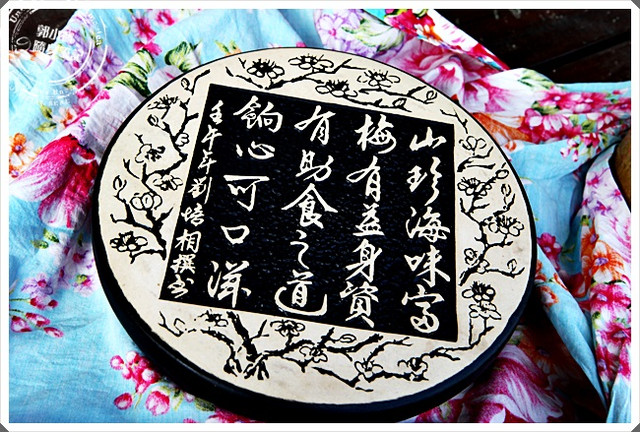 山珍海味富
梅有益身資
有助食之道
餉心可口洋
壬午年劉培相撰書